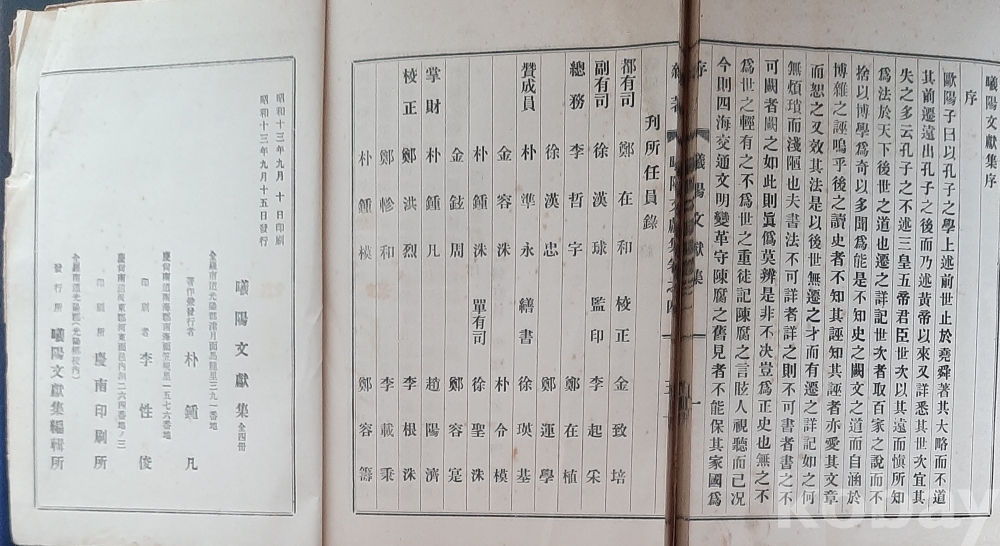 曦陽文獻集序
序
歐陽子曰以孔子之學上述前世止於堯舜著其大略而不道
其前遷遠出孔子之後而乃述黃帝以來又詳悉其世次宜其
失之多云孔子之不述三皇五帝君臣世次以其遠而愼所知
爲法於天下後世之道也遷之詳記世次者取百家之說而不
捨以博學爲奇以多聞爲能是不知史之闕文之道而自涵於
博雜之誣嗚乎後之讀史者不知其誣知其誣者亦愛其文章
而恕之又效其法是以後世無遷之才而有遷之詳記如之何
無煩瑣而淺陋也夫書法不可詳者詳之則不可書者書之不
可闕者闕之如此則眞僞莫辨是非不决豈爲正史也無之不
爲世之輕有之不爲世之重徒記陳腐之言眩人視聽而已況
今則四海交通文明變革守陳腐之舊見者不能保其家國爲
序 曦陽文獻集 一
曦陽文獻集卷之四 五
刊所任員錄
都有司 鄭在和 校正 金致培
副有司 徐漢球 監印 李起采
總務 李哲宇 鄭在植
徐漢忠 鄭運學
贊成員 朴準永 繕書 徐瑛基
金容洙 朴令模
朴鍾洙 單有司 徐聖洙
金鉉周 鄭容寔
掌財 朴鍾凡 趙陽濟
校正 鄭洪烈 李根洙
鄭慘和 李載秉
朴鍾模 鄭容籌
昭和十三年九月十日印刷
昭和十三年九月十五日發行
曦陽文獻集 全四冊
全羅南道光陽郡津月面馬龍里三九一番地
著作兼發行者 朴鍾凡
慶尙南道南海郡南海面笠峴里一五七六番地
印刷者 李性俊
慶尙南道河東郡河東面邑內洞二六四番地ノ三
印刷所 慶南印刷所
全羅南道光陽郡(光陽鄕校內)
發行所 曦陽文獻集編輯所
kobay